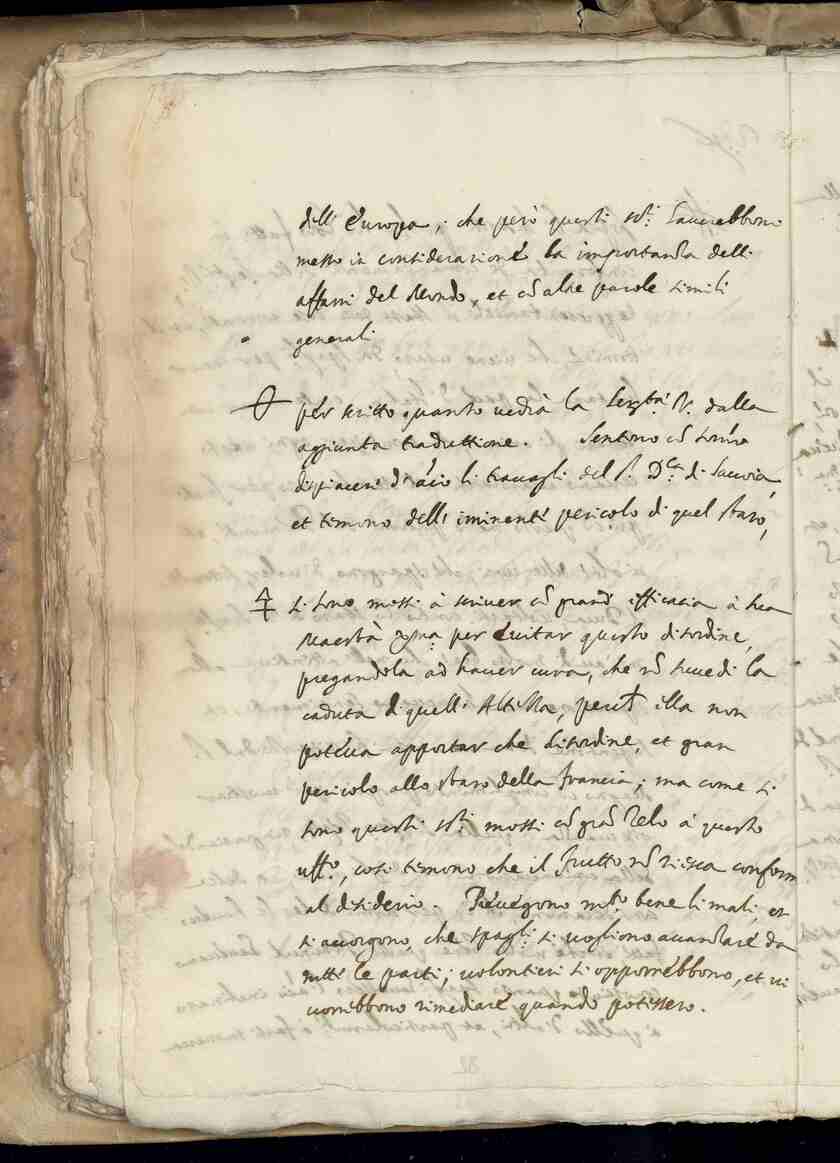 dell' Europa; che però questi ss.ri haverebbono
messo in consideratione la importanza delli
affari del Mondo, et cõ altre parole simili
generali
per scritto quanto vedrà la Ser.tà V. dalla
aggiunta traduttione. Sentono cõ
dispiacere li travagli del s. D.ca di Savoia,
et temono dell' iminente pericolo di quel stato,
si sono mossi à scriver cõ grand' efficacia à sua
Maestà Xma per evitar questo disordine,
pregandola ad haver cura, che nõ succedi la
caduta di quell' Altezza, perche illa non
poteva apportar che disordine, et gran
pericolo allo stato della Francia; ma come si
sono questi ss.ri mossi cõ grã zelo à questo
uff.o, così temono che il frutto nõ riesca conform
al desiderio. Prevegono m.to bene li mali, et
si accorgono, che spag.li si vogliono avanzare da
tutte le parti; volontieri si opporrebbono, et vi
vorrebbono rimediare quando potessero.